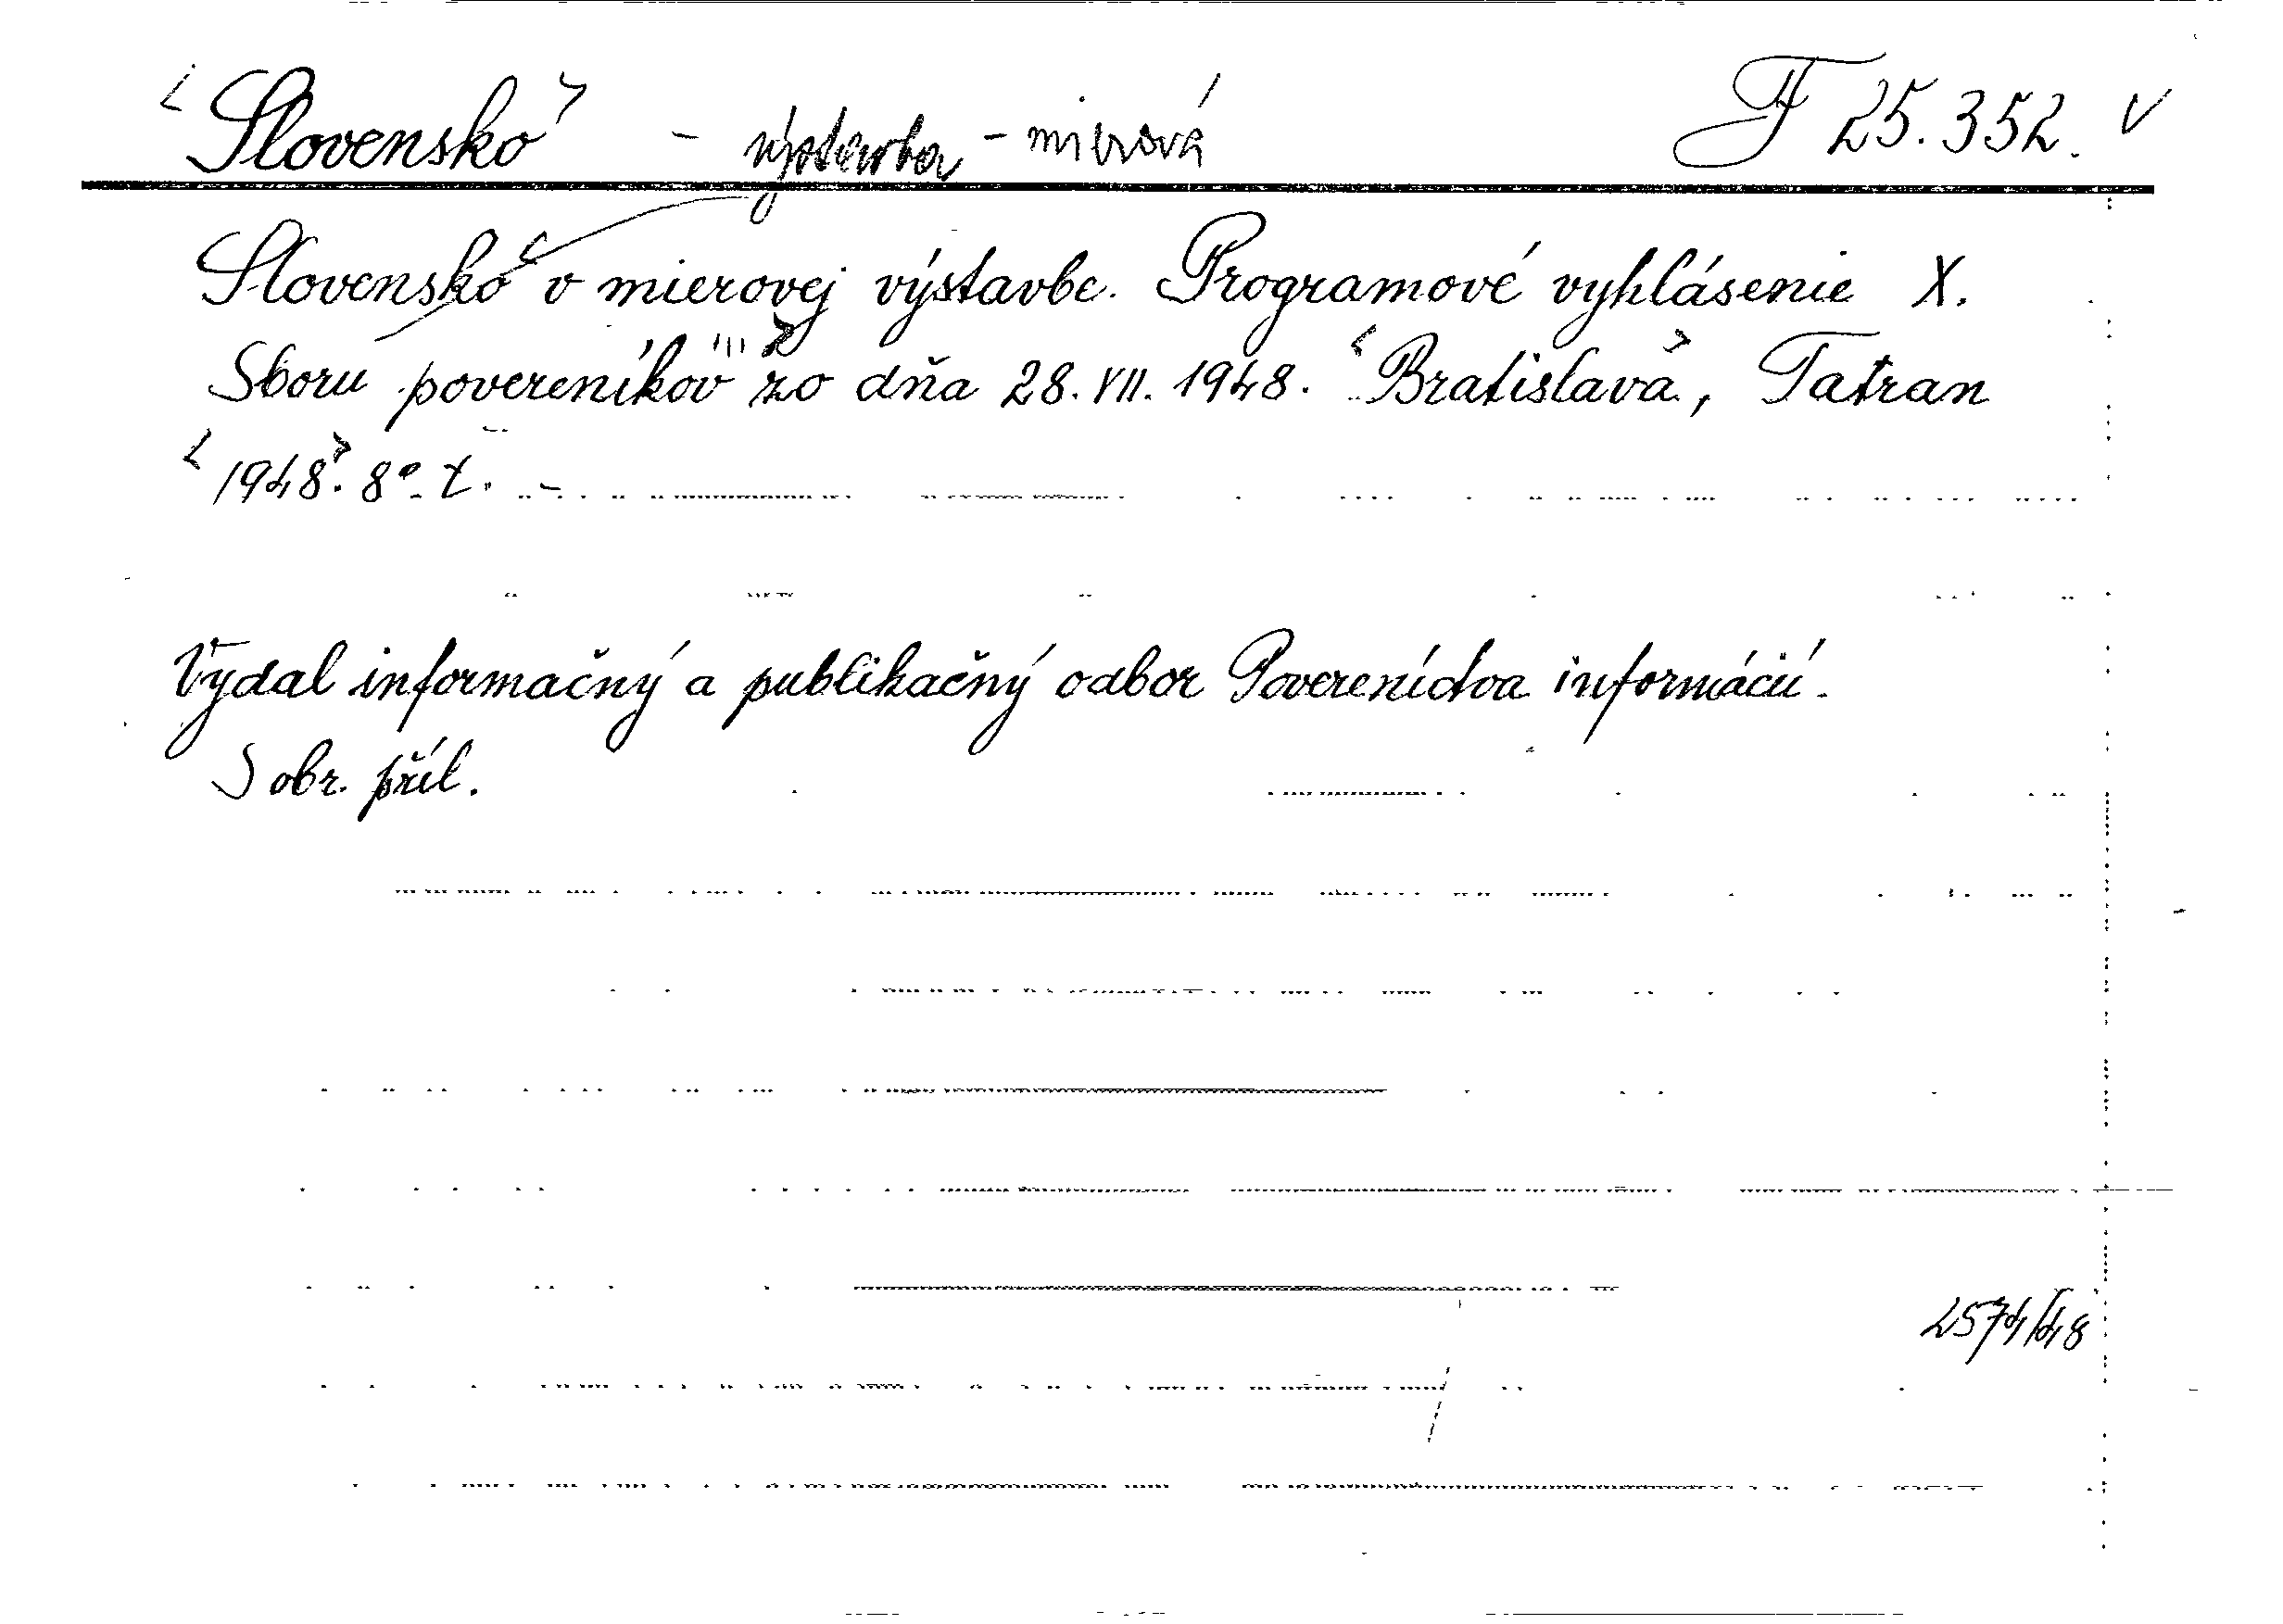 <Slovensko> - výstavba - mierová F 25.352. v
Slovensko v mierovej výstavbe. Programové vyhlásenie X.
Sboru povereníkov zo dňa 28. VII. 1948. <Bratislava>, Tatran
<1948>. 8°. t. -
Vydal informačný a publikačný odbor Povereníctva informácií.
S obr. příl.
2574/48